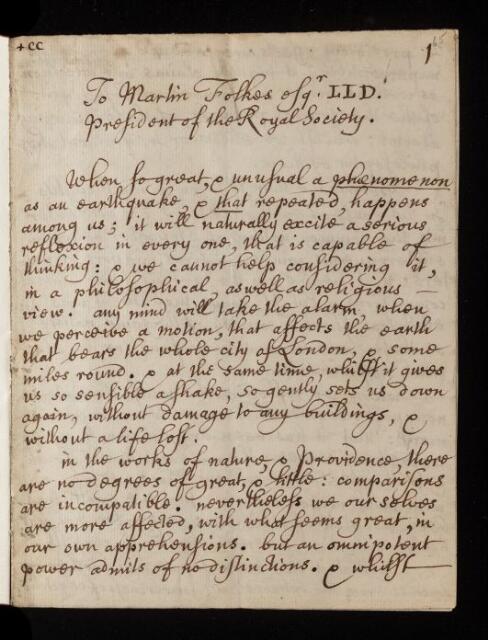 +cc
1
To Martin Folkes esqr. LLD.
President of the Royal Society.
When so great, & unusual a phænomenon
as an earthquake, & that repeated, happens
among us; it will naturally excite a serious
reflexion in every one, that is capable of
thinking: & we cannot help considering it,
in a philosophical, as well as religious
view. any mind will take the alarm, when
we perceive a motion, that affects the earth
that bears the whole city of London, & some
miles round. & at the same time, whilst it gives
us so sensible a shake, so gently sets us down
again, without damage to any buildings, &
without a life lost.
in the works of nature, & Providence, there
are no degrees of great, & little: comparisons
are incompatible. nevertheless we our selves
are more affected, with what seems great, in
our own apprehensions. but an omnipotent
power admits of no distinctions. & whilst